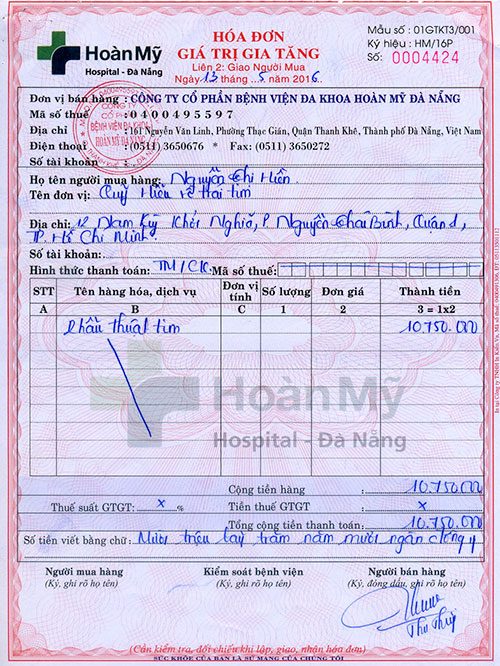 HoànMỹ
Hospital - Đà Nẵng
HÓA ĐƠN
GIÁ TRỊ GIA TĂNG
Liên 2: Giao Người Mua
Ngày 13 tháng 5 năm 2016
Mẫu số : 01GTKT3/001
Ký hiệu : HM/16P
Số: 0004424
Đơn vị bán hàng : CÔNG TY CỔ PHẦN BỆNH VIỆN ĐA KHOA HOÀN MỸ ĐÀ NẴNG
Mã số thuế : 0400495597
Địa chỉ : 161 Nguyễn Văn Linh, Phường Thạc Gián, Quận Thanh Khê, Thành phố Đà Nẵng, Việt Nam
Điện thoại : (0511) 3650676 * Fax: (0511) 3650272
Số tài khoản :
BỆNH VIỆN ĐA KHOA
HOÀN MỸ ĐÀ NẴNG
Họ tên người mua hàng: Nguyễn Chi Hiền
Tên đơn vị: Quỹ Hiểu về trái tim
Địa chỉ: 12 Nam Kỳ Khởi Nghĩa, P. Nguyễn Thái Bình, Quận 1,
TP. Hồ Chí Minh.
Số tài khoản:
Hình thức thanh toán: TM/CK Mã số thuế:
STT Tên hàng hóa, dịch vụ Đơn vị tính Số lượng Đơn giá Thành tiền
A B C 1 2 3 = 1x2
Phẫu thuật tim 10.750.000
HoànMỹ
Hospital - Đà Nẵng
Cộng tiền hàng : 10.750.000
Thuế suất GTGT: x % Tiền thuế GTGT : x
Tổng cộng tiền thanh toán: 10.750.000
Số tiền viết bằng chữ: Mười triệu bảy trăm năm mươi ngàn đồng y
Người mua hàng Kiểm soát bệnh viện Người bán hàng
(Ký, ghi rõ họ tên) (Ký, ghi rõ họ tên) (Ký, đóng dấu, ghi rõ họ tên)
Thu Thủy
(Cần kiểm tra, đối chiếu khi lập, giao, nhận hóa đơn)
SỨC KHỎE CỦA BẠN LÀ SỨ MẠNG CỦA CHÚNG TÔI